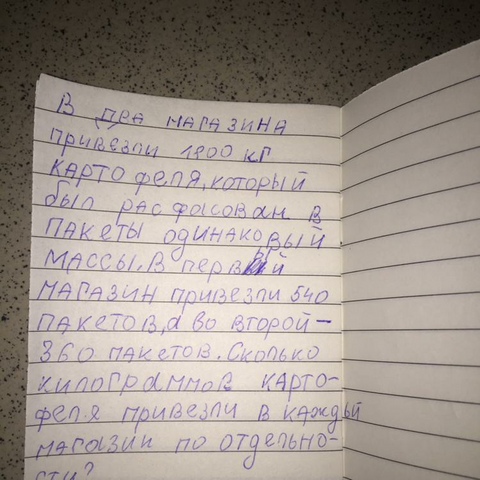 В два магазина
привезли 1800 кг
картофеля, который
был расфасован в
пакеты одинаковый
массы. В первый
магазин привезли 540
пакетов, а во второй -
360 пакетов. Сколько
килограммов карто-
феля привезли в каждый
магазин по отдельно-
сти?